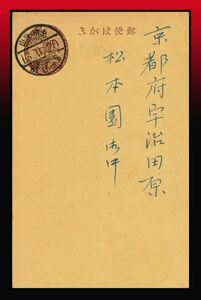 郵便はがき
京都府宇治田原
松本園御中